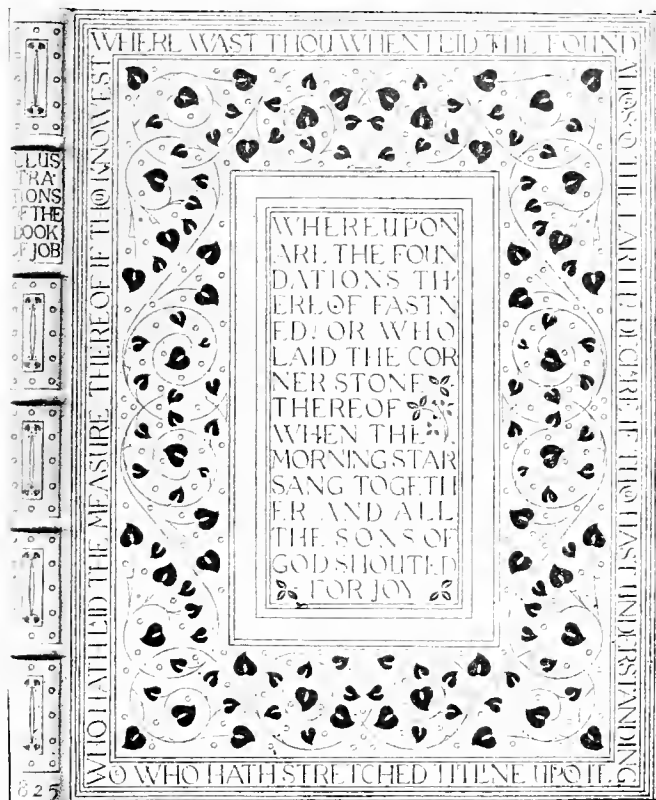 ILLUS
TRA·
TIONS
OF THE
BOOK
OF JOB
825
WHERE WAST THOU WHEN I LAID THE FOUND
ATIOS O THE EARTH DECARE IF THO HAST UNDERSTANDING
O WHO HATH STRETCHED THE LINE UPO IT
WHO HATH LAID THE MEASURE THEREOF IF THO KNOWEST
WHEREUPON
ARE THE FOUN
DATIONS TH
EREOF FASTN
ED? OR WHO
LAID THE COR
NER STONE
THEREOF
WHEN THE
MORNING STAR
SANG TOGETH
ER AND ALL
THE SONS OF
GOD SHOUTED
FOR JOY